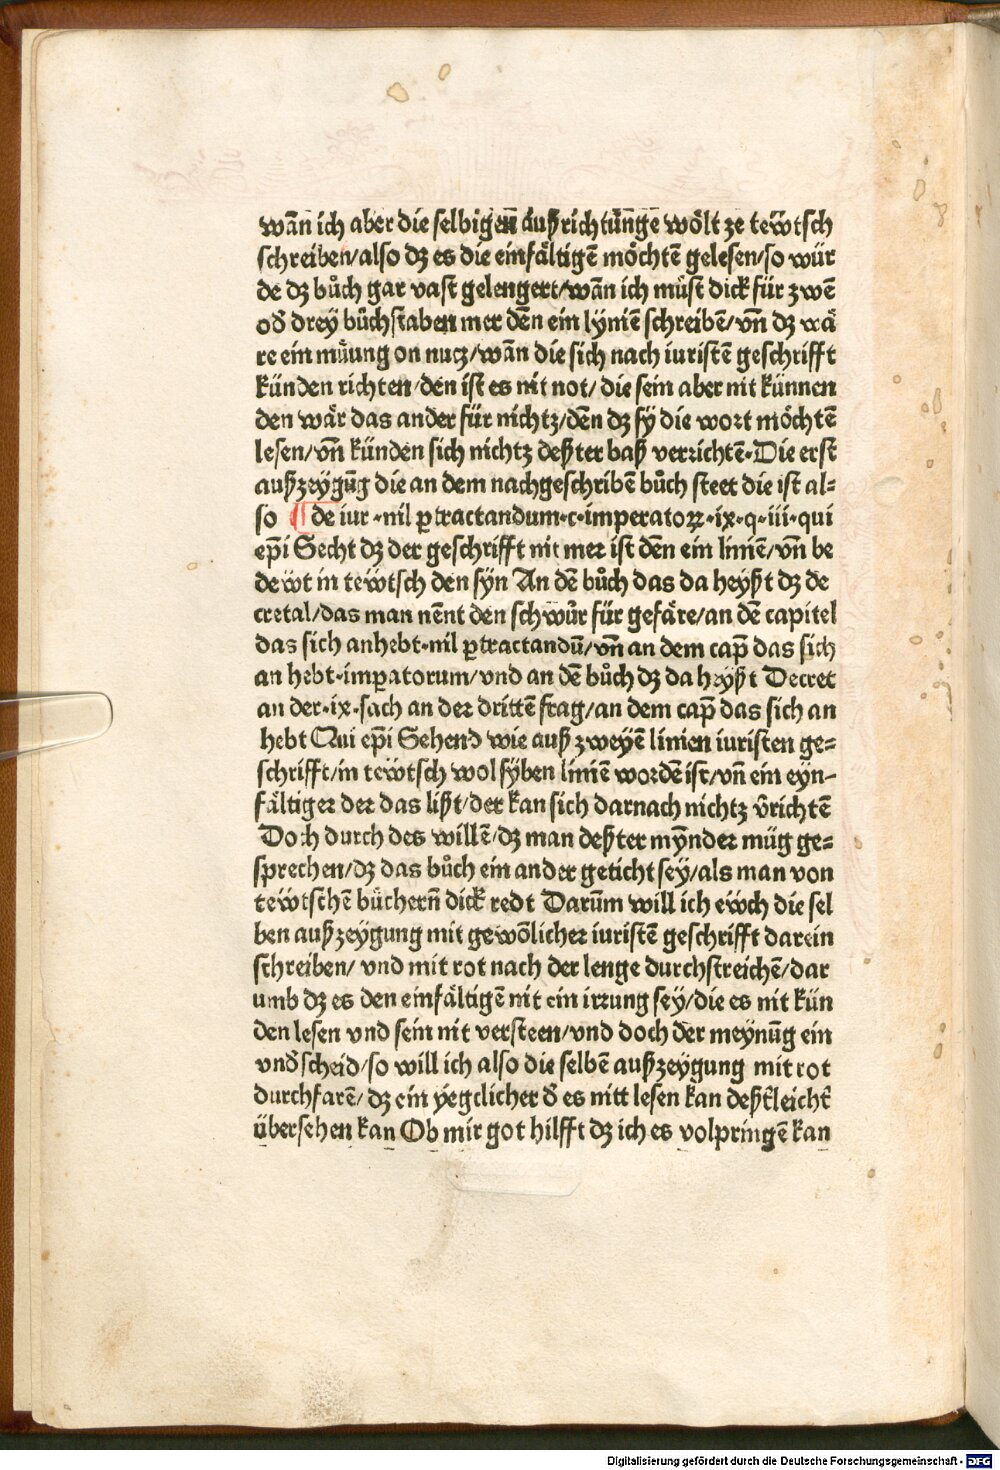 wān ich aber die selbigen außrichtūnge wölt ze tewtsch
schreiben/also dz es die einfältigē möchtē gelesen/so wür
de dz bůch gar vast gelengert/wān ich müst dick für zwē
od̄ drey bůchstaben mer dēn ein lyniē schreibē/vn̄ dz wä
re ein müung on nucz/wān die sich nach iuristē geschrifft
künden richten/den ist es nit not/die sein aber nit künnen
den wär das ander für nichtz/dēn dz sy die wort möchtē
lesen/vn̄ künden sich nichtz deßter baß verrichtē·Die erst
außzeygūg die an dem nachgeschribē bůch steet die ist al=
so ¶ de iur ·nil ꝑtractandum·c·imperatoꝝ·ix·q·iii·qui
ep̄i Secht dz der geschrifft nit mer ist dēn ein liniē/vn̄ be
dewt in tewtsch den syn An dē bůch das da heyßt dz de
cretal/das man nēnt den schwůr für gefäre/an dē capitel
das sich anhebt·nil ꝑtractandū/vn̄ an dem cap̄ das sich
an hebt·imꝑatorum/vnd an dē bůch dz da heyßt Decret
an der·ix·sach an der drittē frag/an dem cap̄ das sich an
hebt Qui ep̄i Sehend wie auß zweyē linien iuristen ge=
schrifft/in tewtsch wol syben liniē wordē ist/vn̄ ein eyn-
fältiger der das lißt/der kan sich darnach nichtz v̄richtē
Doch durch des willē/dz man deßter mȳnder müg ge=
sprechen/dz das bůch ein ander geticht sey/als man von
tewtschē büchern̄ dick redt Darūm will ich ewch die sel
ben außzeygung mit gewōlicher iuristē geschrifft darein
schreiben/ vnd mit rot nach der lenge durchstreichē/dar
umb dz es den einfältigē nit ein irrung sey/die es nit kün
den lesen vnd sein nit versteen/vnd doch der meynūg ein
vnd̄scheid/so will ich also die selbē außzeygung mit rot
durchfarē/dz ein yegclicher d̄ es nitt lesen kan deßt̄leicht̄
übersehen kan Ob mir got hilfft dz ich es volpringē kan
Digitalisierung gefördert durch die Deutsche Forschungsgemeinschaft - DFG